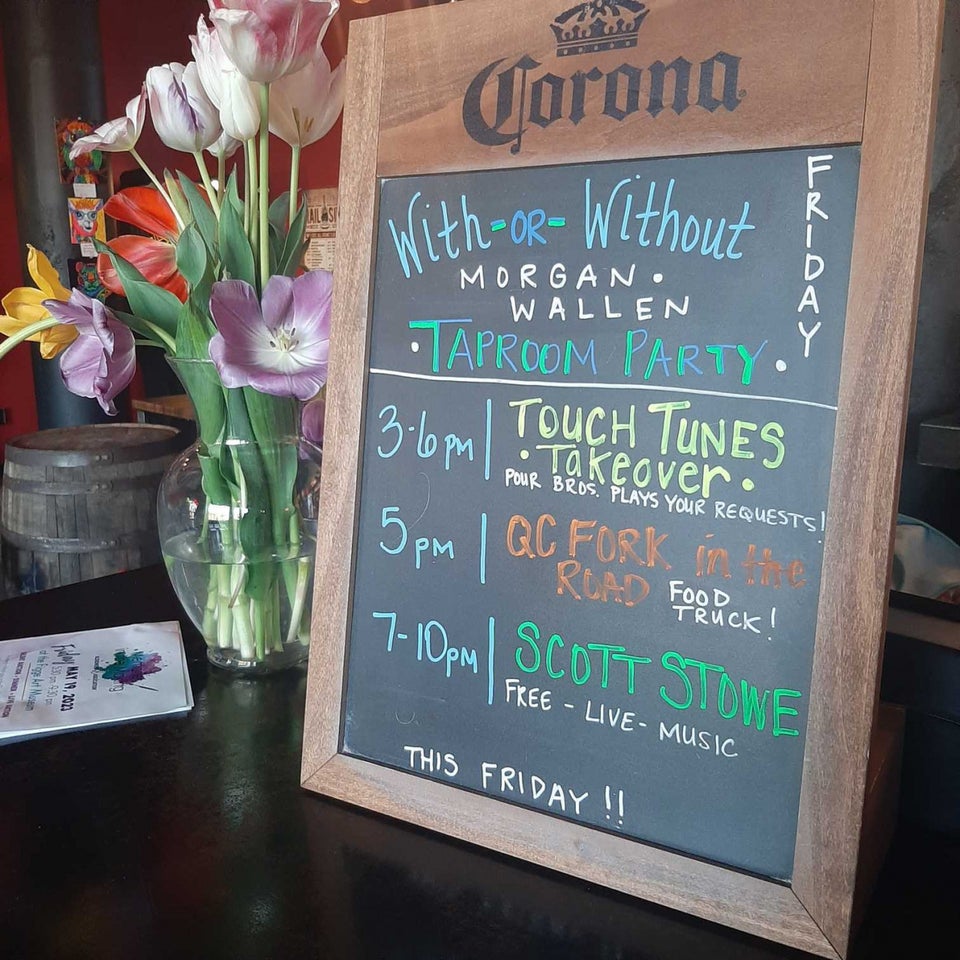 Corona
FRIDAY
With-OR-Without
MORGAN •
WALLEN
• TAPROOM PARTY •
3-6pm
TOUCH TUNES
• Takeover •
POUR BROS. PLAYS YOUR REQUESTS!
5pm
QC FORK in the
ROAD
FOOD
TRUCK!
7-10pm
SCOTT STOWE
FREE - LIVE - MUSIC
THIS FRIDAY !!
Friday MAY 19, 2023
5:30 pm
at the Figge Art Museum